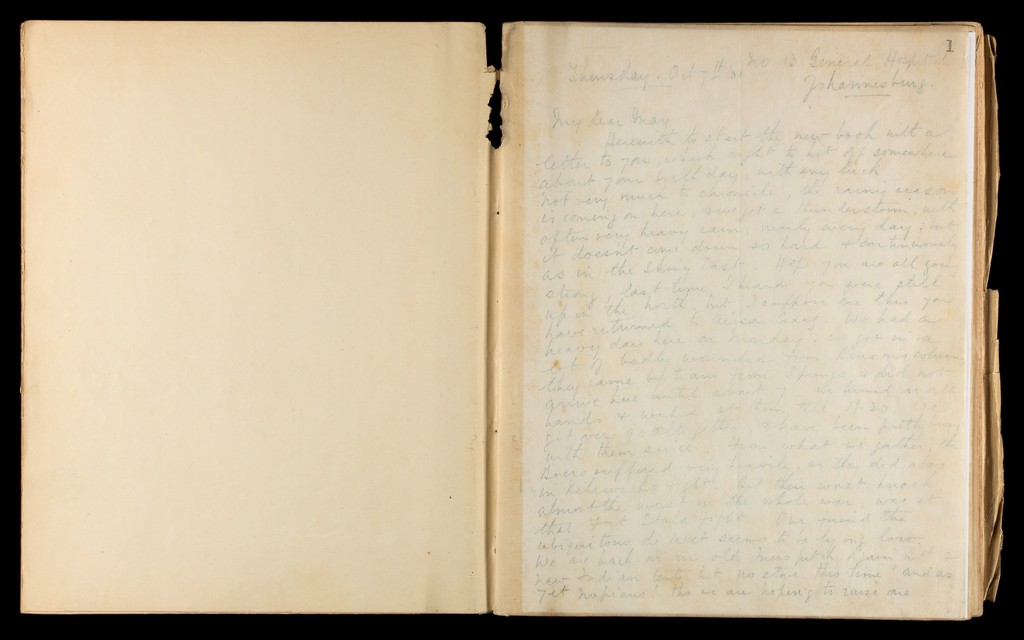 1
No 13 General Hospital
Thursday. Oct 7th 01
Johannesburg.
My dear May
Herewith to start the new book with a
letter to you, which ought to hit off somewhere
about your birthday with any luck
Not very much to chronicle, the rainy season
is coming on here, we get a thunderstorm, with
often very heavy rain, nearly every day, but
it doesn't come down so hard & continuously
as in the Shiny East. Hope you are all going
strong, last time I heard you were still
up in the north but I suppose ere this you
have returned to
heavy day here on Monday, we got in a
lot of badly wounded from column
they came by train from Springs & did not
arrive here until about 7 we turned in all
hands & worked at them till 11.30
got over altogether & have been pretty busy
with them since. From what we gather the
Boers suffered very heavily, as they did also
in fight. but their worst knock
almost the worst in the whole war was at
that Fort Itala fight. Our friend the
ubiquitous de Wet seems to be lying low.
We are back in our old mess pitch again with 2
new Indian tents but no stove this time! and as
yet no piano! tho we are hoping to raise one.